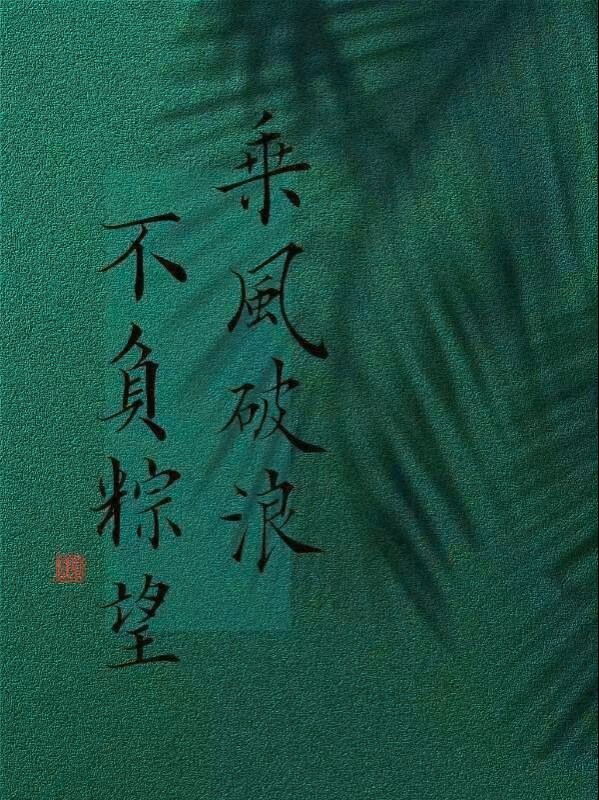 乗風破浪
不負粽望